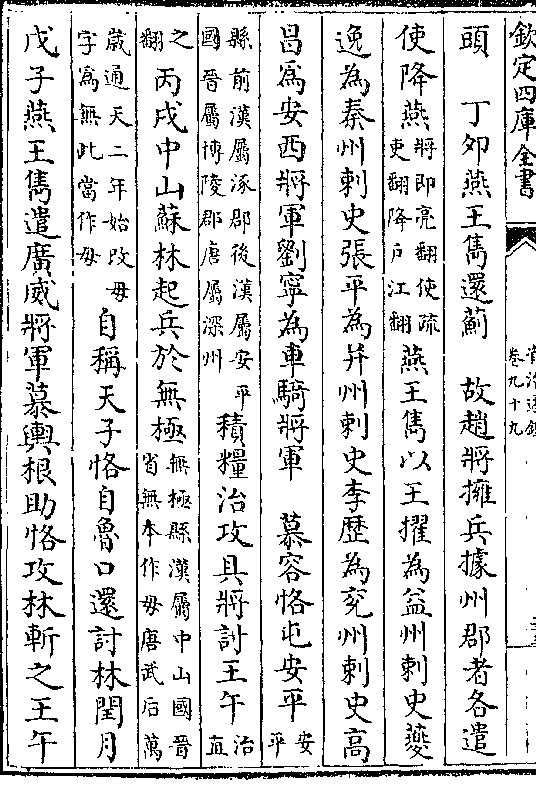 欽定四庫全書
資治通鑑
卷九十九
頭　丁卯燕王儁還薊　故趙將擁兵據州郡者各遣
使降燕將即亮翻使疏吏翻降戶江翻燕王儁以王擢為益州刺史夔
逸為秦州刺史張平為并州刺史李歷為兖州刺史高
昌為安西將軍劉寧為車騎將軍　慕容恪屯安平安平
縣前漢屬涿郡後漢屬安平國晉屬博陵郡唐屬深州積糧治攻具將討王午治直
之翻丙戌中山蘇林起兵於無極無極縣漢屬中山國晉省無本作毋唐武后萬
歲通天二年始改毋字為無此當作毋自稱天子恪自魯口還討林閏月
戊子燕王儁遣廣威將軍慕輿根助恪攻林斬之王午